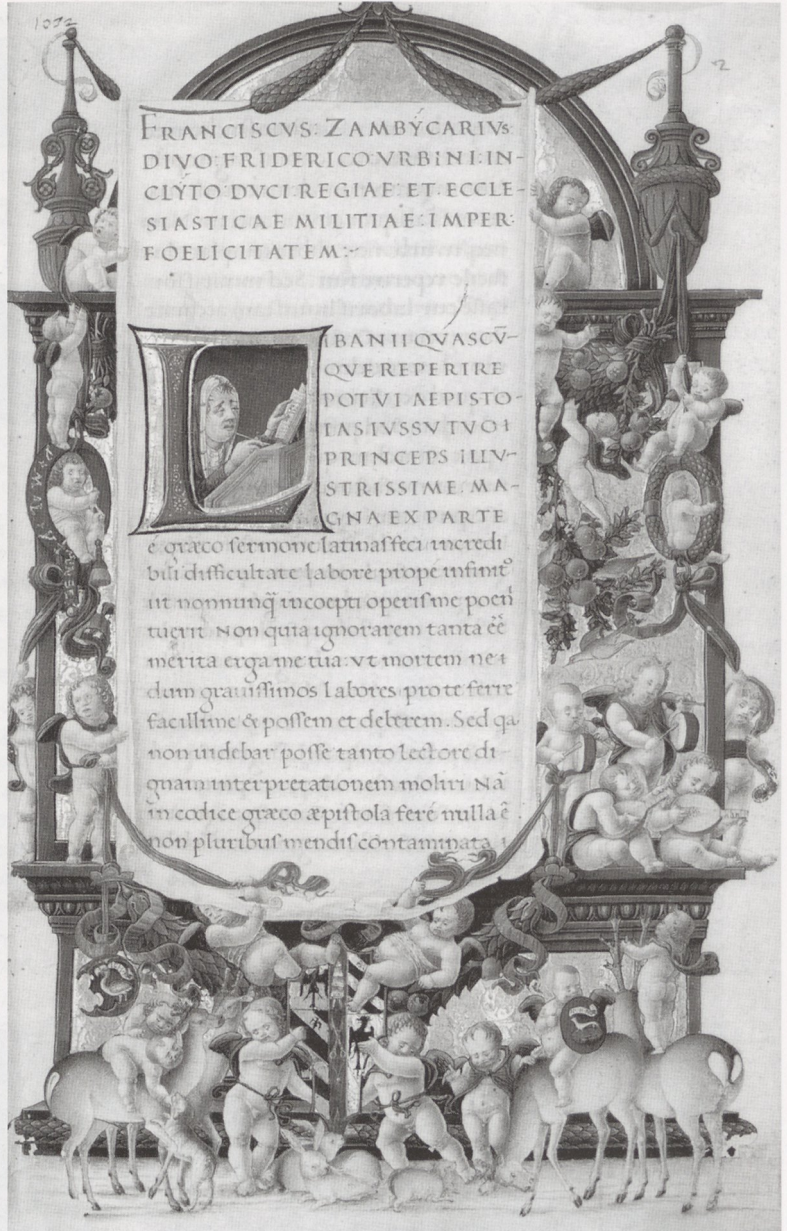 1072
2
FRANCISCVS: ZAMBÝCARIVs
DIVO: FRIDERICO: VRBINI: IN-
CLÝTO DVCI: REGIAE: ET: ECCLE-
SIASTICAE MILITIAE: IMPER:
FOELICITATEM:-
LIBANII QVASCV̄-
QVE REPERIRE
POTVI AEPISTO-
LAS IVSSV TVO I
PRINCEPS ILLV-
STRISSIME. MA-
GNA EX PARTE
e græco sermone latinas feci incredi
bili difficultate labore prope infinito
ut nonnunq̄ incoepti operis me poeni
tuerit Non quia ignorarem tanta eē
merita erga me tua: vt mortem ne i
dum grauissimos labores pro te ferre
facillime & possem et deberem. Sed qa
non uidebar posse tanto lectore di-
gnam interpretationem moliri Nā
in codice græco æpistola feré nulla ē
non pluribus mendis cōntaminata i